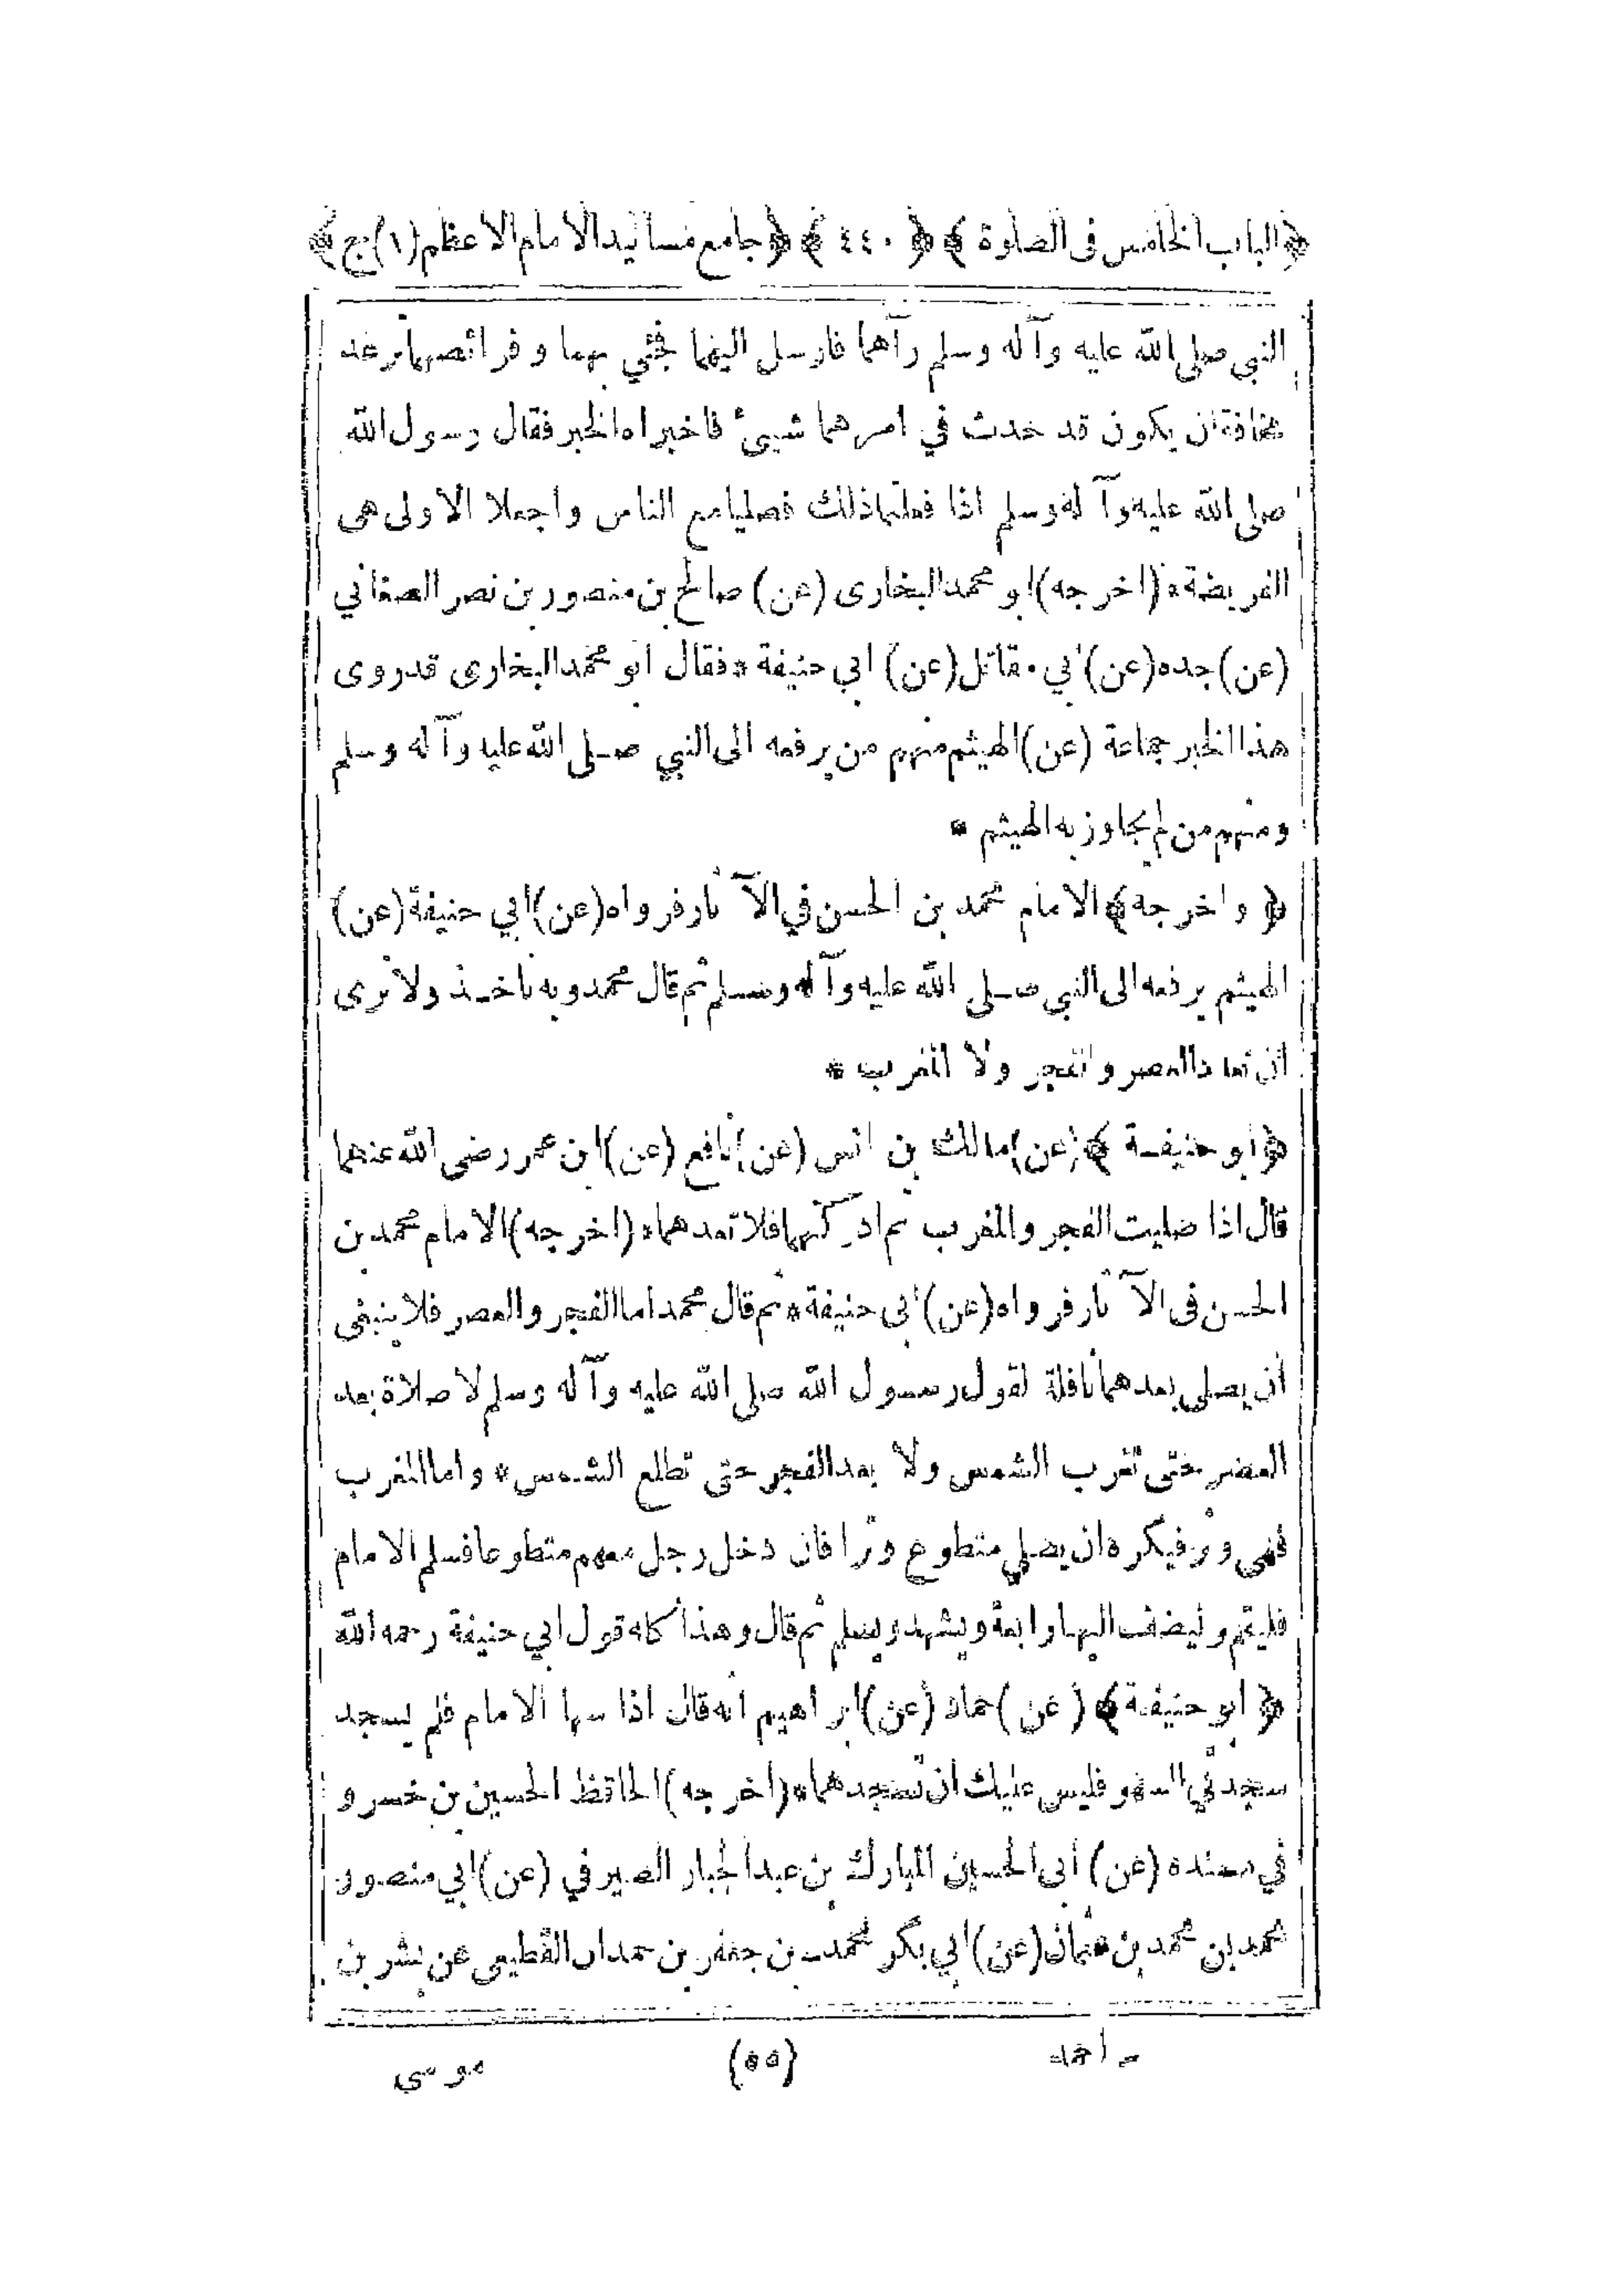 ﴿الباب الخامس فى الصلوة﴾ ﴿٤٤٠﴾ ﴿جامع مسانيد الامام الاعظم(١)ج﴾
النبى صلى الله عليه وآله وسلم رآهما فارسل اليهما فجئي بهما و فرائصهما ترعد
مخافة ان يكون قد حدث في امرهما شيئ فاخبراه الخبر فقال رسول الله
صلى الله عليه وآله وسلم اذا فعلتما ذلك فصليا مع الناس واجعلا الاولى هى
الفريضة *(اخرجه) ابو محمد البخارى (عن) صالح بن منصور بن نصر الصغاني
(عن) جده (عن) أبي مقاتل (عن) ابي حنيفة * فقال ابو محمد البخارى قد روى
هذا الخبر جماعة (عن) الهيثم منهم من يرفعه الى النبي صلى الله عليه وآله وسلم
ومنهم من لم يجاوز به الهيثم *
﴿واخرجه﴾ الامام محمد بن الحسن في الآثار فرواه (عن) أبي حنيفة (عن)
الهيثم يرفعه الى النبي صلى الله عليه وآله وسلم ثم قال محمد وبه ناخذ ولا نرى
ان تعاد العصر والفجر ولا المغرب *
﴿أبو حنيفة﴾ (عن) مالك بن انس (عن) نافع (عن) ابن عمر رضى الله عنهما
قال اذا صليت الفجر والمغرب ثم ادركتهما فلا تعدهما * (اخرجه) الامام محمد بن
الحسن فى الآثار فرواه (عن) أبى حنيفة * ثم قال محمد اما الفجر والعصر فلا ينبغى
أن يصلى بعدهما نافلة لقول رسول الله صلى الله عليه وآله وسلم لا صلاة بعد
العصر حتى تغرب الشمس ولا بعد الفجر حتى تطلع الشمس * واما المغرب
فهى وتر فيكره ان يصلي متطوع وترا فان دخل رجل معهم متطوعا فسلم الامام
فليقم وليضف اليها رابعة ويتشهد ويسلم ثم قال وهذا كله قول ابي حنيفة رحمه الله
﴿أبو حنيفة﴾ (عن) حماد (عن) ابراهيم انه قال اذا سها الامام فلم يسجد
سجدتي السهو فليس عليك ان تسجدهما * (اخرجه) الحافظ الحسين بن خسرو
في مسنده (عن) أبى الحسين المبارك بن عبد الجبار الصيرفي (عن) ابي منصور
محمد بن محمد بن عثمان (عن) ابي بكر محمد بن جعفر بن حمدان القطيعى عن بشر بن
احمد (٥٥) موسى